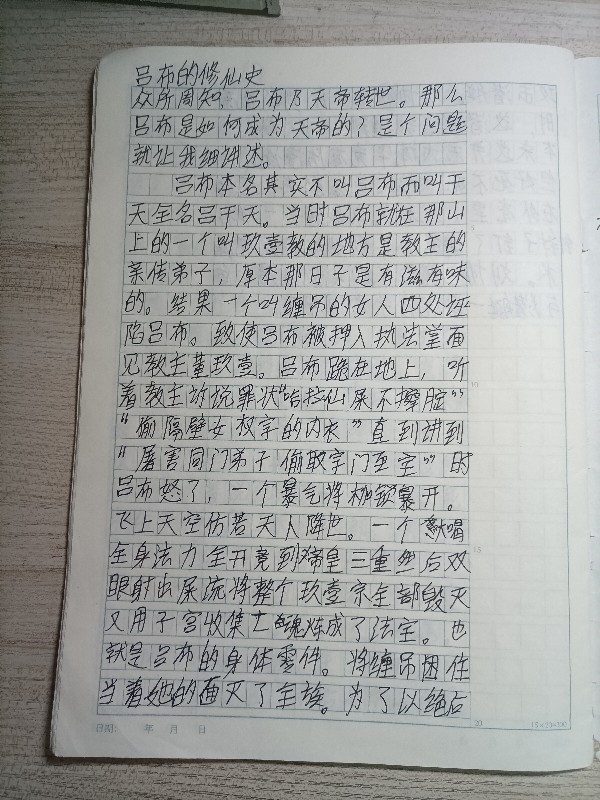 吕布的修仙史
众所周知，吕布乃天帝转世。那么
吕布是如何成为天帝的？是个问题
就让我细讲述。
吕布本名其实不叫吕布而叫干
天全名吕干天。当时吕布就在那山
上的一个叫玖壹教的地方是教主的
亲传弟子，原本那日子是有滋有味
的。结果一个叫缠吊的女人四处诬
陷吕布。致使吕布被押入执法堂面
见教主董玖壹。吕布跪在地上，听
着教主诉说罪状“哈拉仙屎不擦腚”
“偷隔壁女权字的内衣”直到讲到
“屠害同门弟子偷取宗门至宝”时
吕布怒了，一个暴气将枷锁暴开。
飞上天空仿若天人降世。一个
全身法力全开竟到帝皇三重然后双
眼射出屎流将整个玖壹宗全部毁灭
又用子宫收集亡魂炼成了法宝。也
就是吕布的身体零件。将缠吊困住
当着她的面灭了全族。为了以绝后
日期： 年 月 日
20
15×20=300